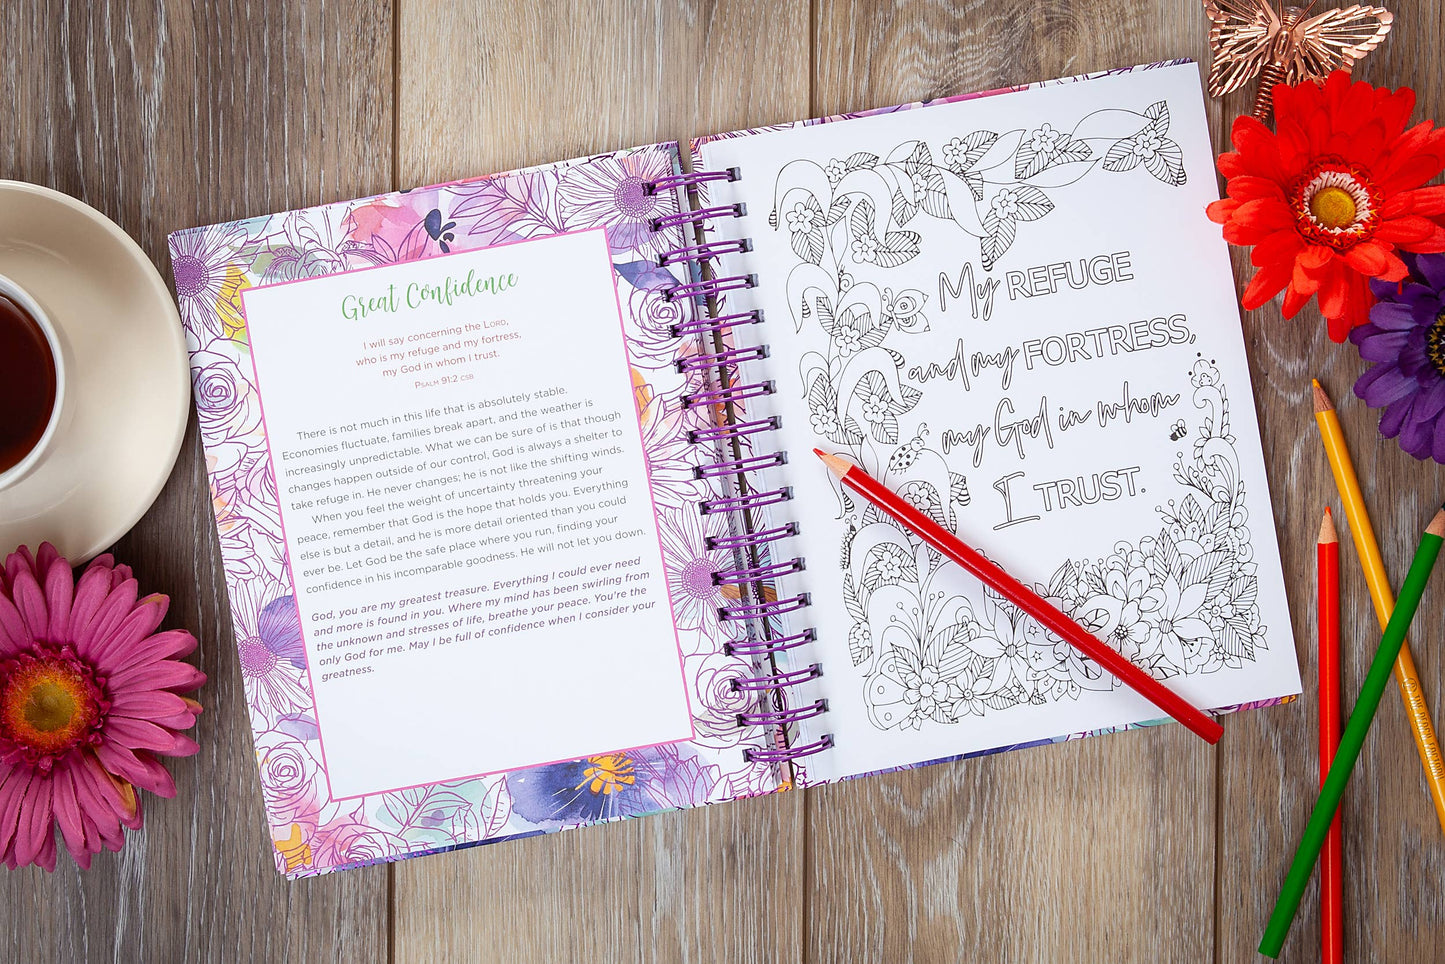 Great Confidence
I will say concerning the LORD,
who is my refuge and my fortress,
my God in whom I trust.
PSALM 91:2 CSB
There is not much in this life that is absolutely stable.
Economies fluctuate, families break apart, and the weather is
increasingly unpredictable. What we can be sure of is that though
changes happen outside of our control, God is always a shelter to
take refuge in. He never changes; he is not like the shifting winds.
When you feel the weight of uncertainty threatening your
peace, remember that God is the hope that holds you. Everything
else is but a detail, and he is more detail oriented than you could
ever be. Let God be the safe place where you run, finding your
confidence in his incomparable goodness. He will not let you down.
God, you are my greatest treasure. Everything I could ever need
and more is found in you. Where my mind has been swirling from
the unknown and stresses of life, breathe your peace. You're the
only God for me. May I be full of confidence when I consider your
greatness.
My REFUGE
and my FORTRESS,
my God in whom
I TRUST.